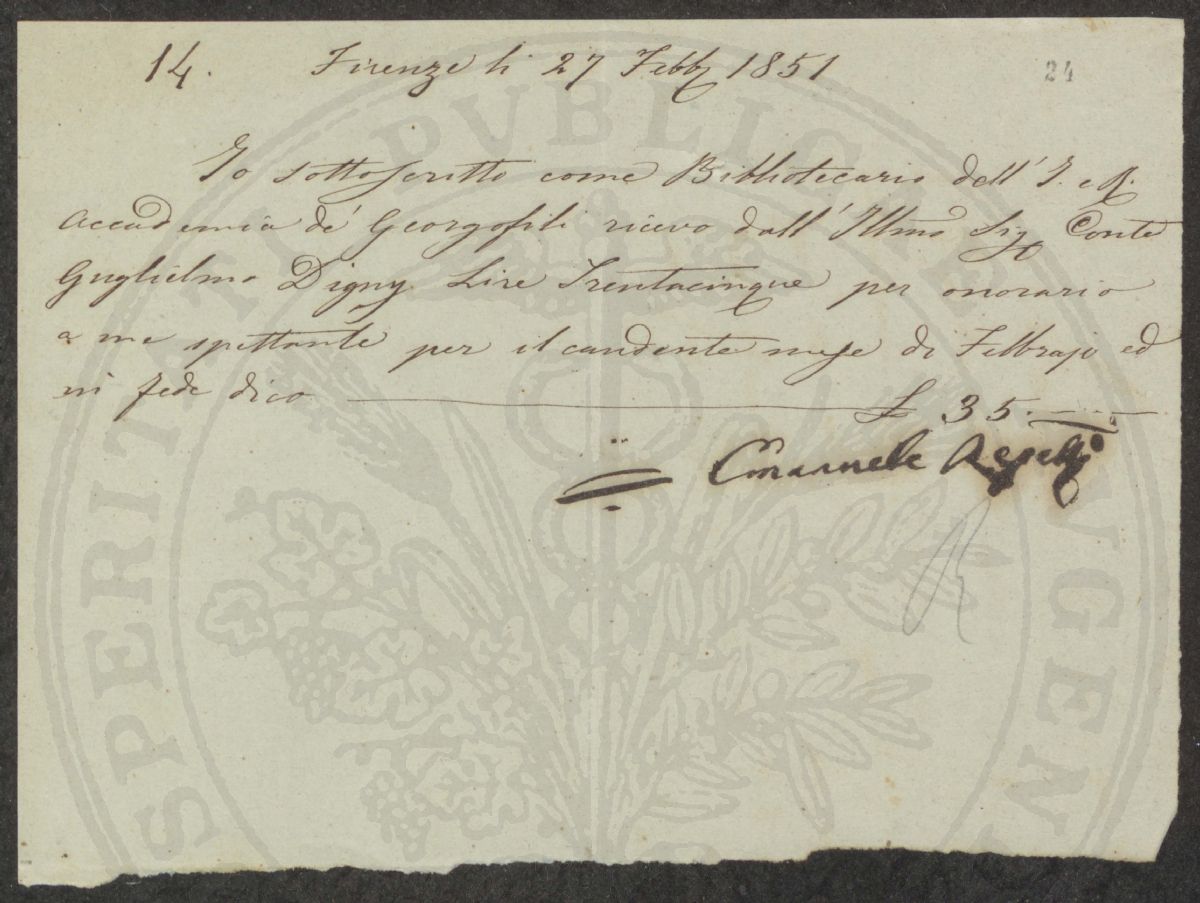 14. Firenze li 27 Febb 1851 24
Io sottoscritto come Bibliotecario dell' I. e R.
Accademia de' Georgofili ricevo dall' Illmo Sig Conte
Guglielmo Digny Lire Trentacinque per onorario
a me spettante per il candente mese di Febbrajo ed
in fede dico £ 35.
Emanuele Repetti
PROSPERITATI PVBLICAE AVGENDAE